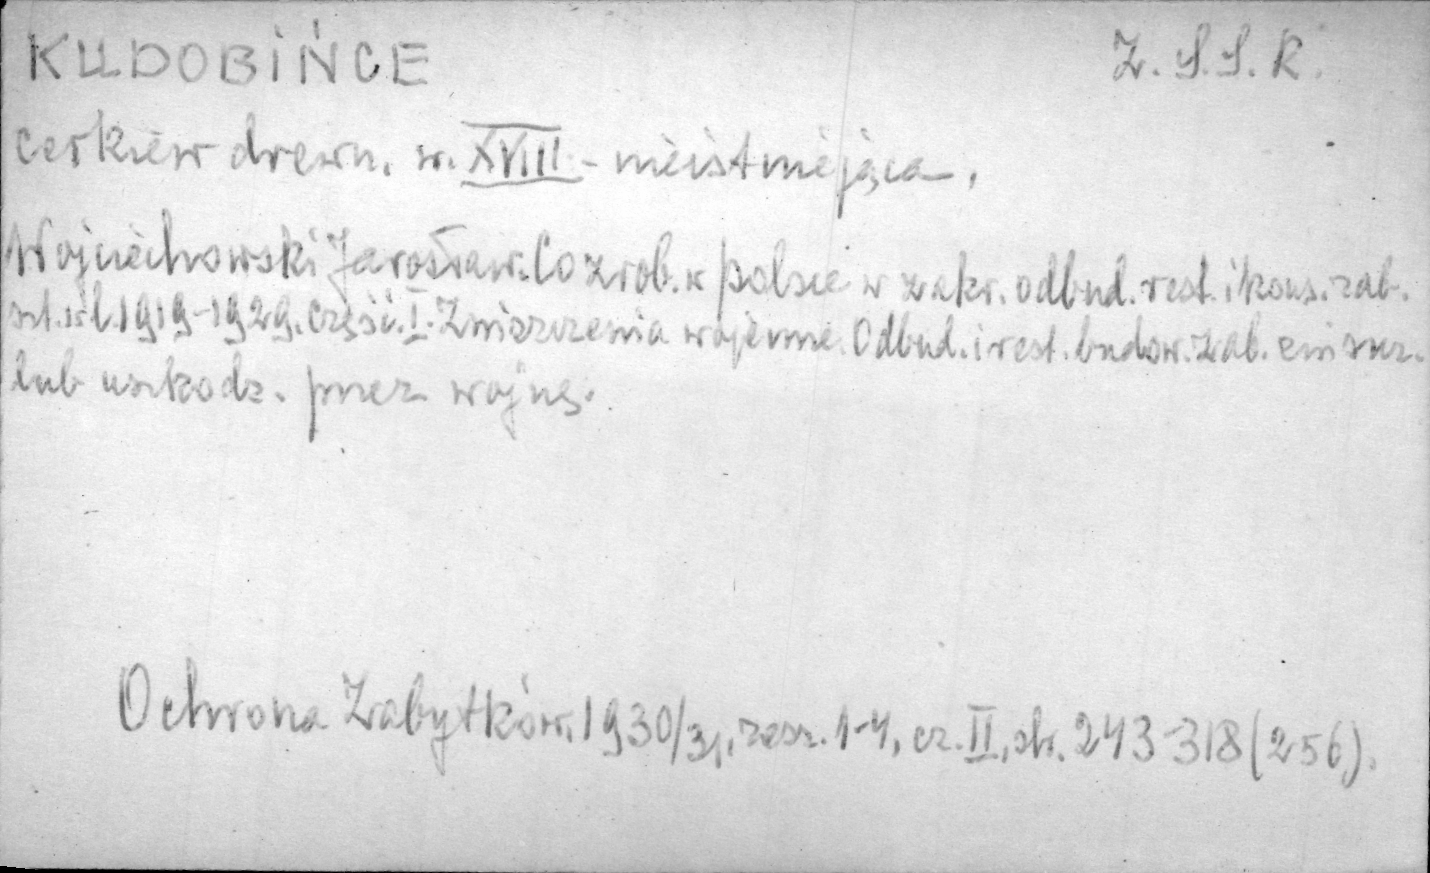 KUDOBIŃCE Z.S.S.R.
cerkiew drewn. w. XVIII - nieistniejąca.
Wojciechowski Jarosław. Co zrob. w Polsce w zakr. odbud. rest. i kons. zab.
szt. w l. 1919-1929. Część. I. Zniszczenia wojenne. Odbud. i rest. budow. zab. znisz.
lub uszkodz. przez wojnę.
Ochrona Zabytków. 1930/31, zesz. 1-4, cz. II, str. 243-318 (256).